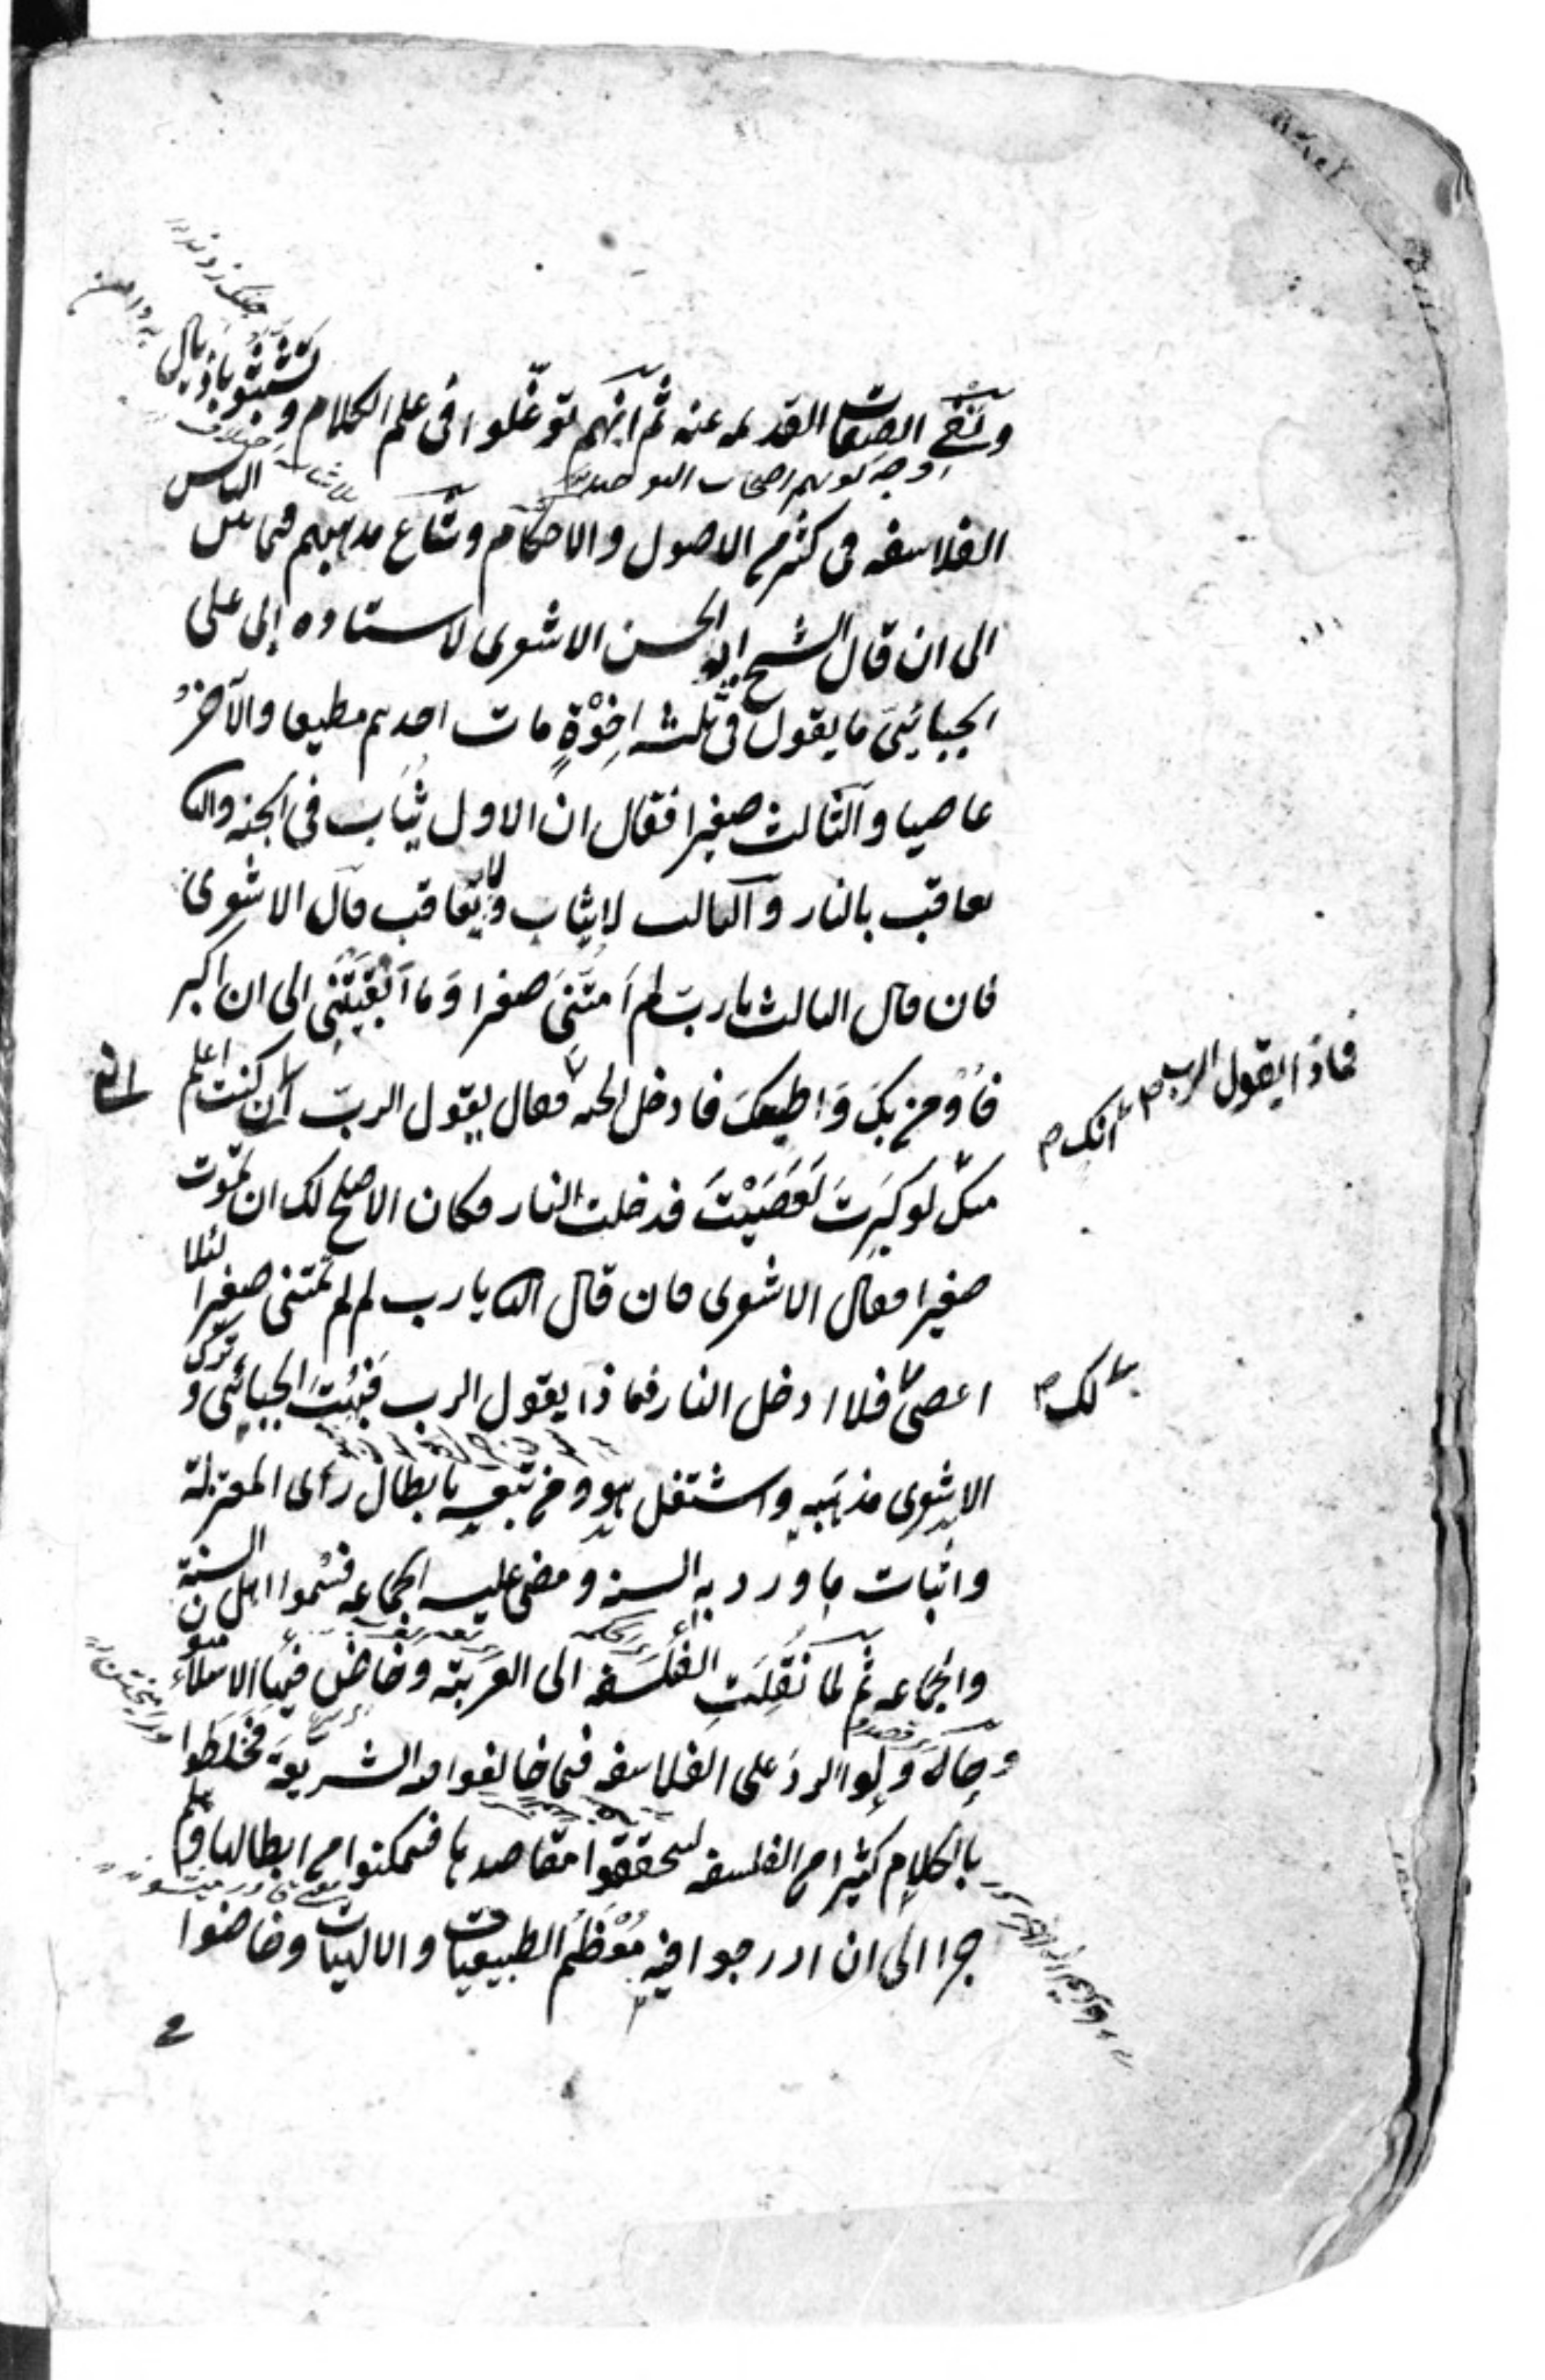 ونفي الصفات القديمه عنه ثم انهم توغلوا فى علم الكلام و تشبثوا باذيال
الفلاسفه فى كثير من الاصول والاحكام وشاع مذهبهم فيما بين الناس
الى ان قال الشيخ ابو الحسن الاشعرى لاستاده ابى على
الجبائىّ ما يقول فى ثلثه اِخْوَةٍ مات احدهم مطيعا والآخرُ
عاصيا والثالث صغيرا فقال ان الاول يُثاب فى الجنه والثا
يعاقب بالنار والثالث لا يثاب ولا يعاقب قال الاشعرى
فان قال الثالث يا ربّ لم اَمَتَّنِى صغيرا وَما اَبْقَيْتَنِى الى ان اكبر
فاُؤمن بكَ وَاطيعكَ فادخل الجنه فقال يقول الربّ انى كنت اعلم
منك لو كبِرتَ لَعَصَيْتَ فدخلت النار فكان الاصلح لك ان تموت
صغيرا فقال الاشعرى فان قال الثا يا رب لم لم تمتنى صغيرا لئلا
اعصى فلا ادخل النار فماذا يقول الرب فبُهِتَ الجبائى و ترك
الاشعرى مذهبه واشتغل هو ومن تبعه بابطال رأى المعتزلة
واثبات ما ورد به السنه ومضى عليه الجماعه فسُموا اهل السنة
والجماعه ثم لما نُقِلَتِ الفَلسَفه الى العَرَبيّه وخاض فيها الاسلاميون
وحاوَلوا الردَ على الفلاسفه فيما خالفوا فيه الشريعَة فخَلَطوا
بالكلام كثيرا من الفلسفه ليحققوا مقاصدها فيتمكنوا من ابطالها وهلم
جرا الى ان ادرجوا فيه مُعْظَمُ الطبيعيات والالهيات وخاضوا
فى
فماذا يقول الرب
انك
لك